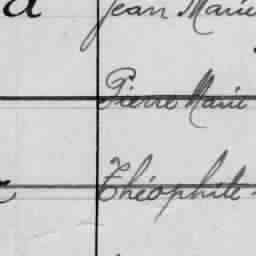 Jean Marie
Pierre Marie
Théophile